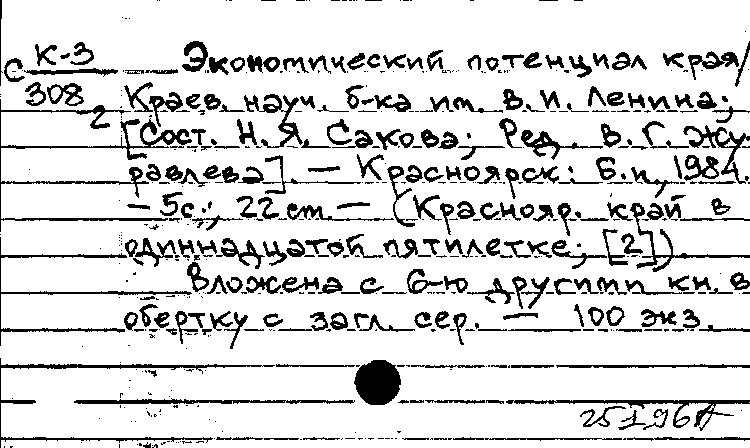 С К-3 Экономический потенциал края/
308-2 Краев. науч. б-ка им. В.И. Ленина;
[Сост. Н.Я. Сакова; Ред. В.Г. Жу-
равлева]. — Красноярск: Б.и., 1984.
— 5с.; 22 см. — (Краснояр. край в
одиннадцатой пятилетке; [2]).
Вложена с 6-ю другими кн. в
обертку с загл. сер. — 100 экз.